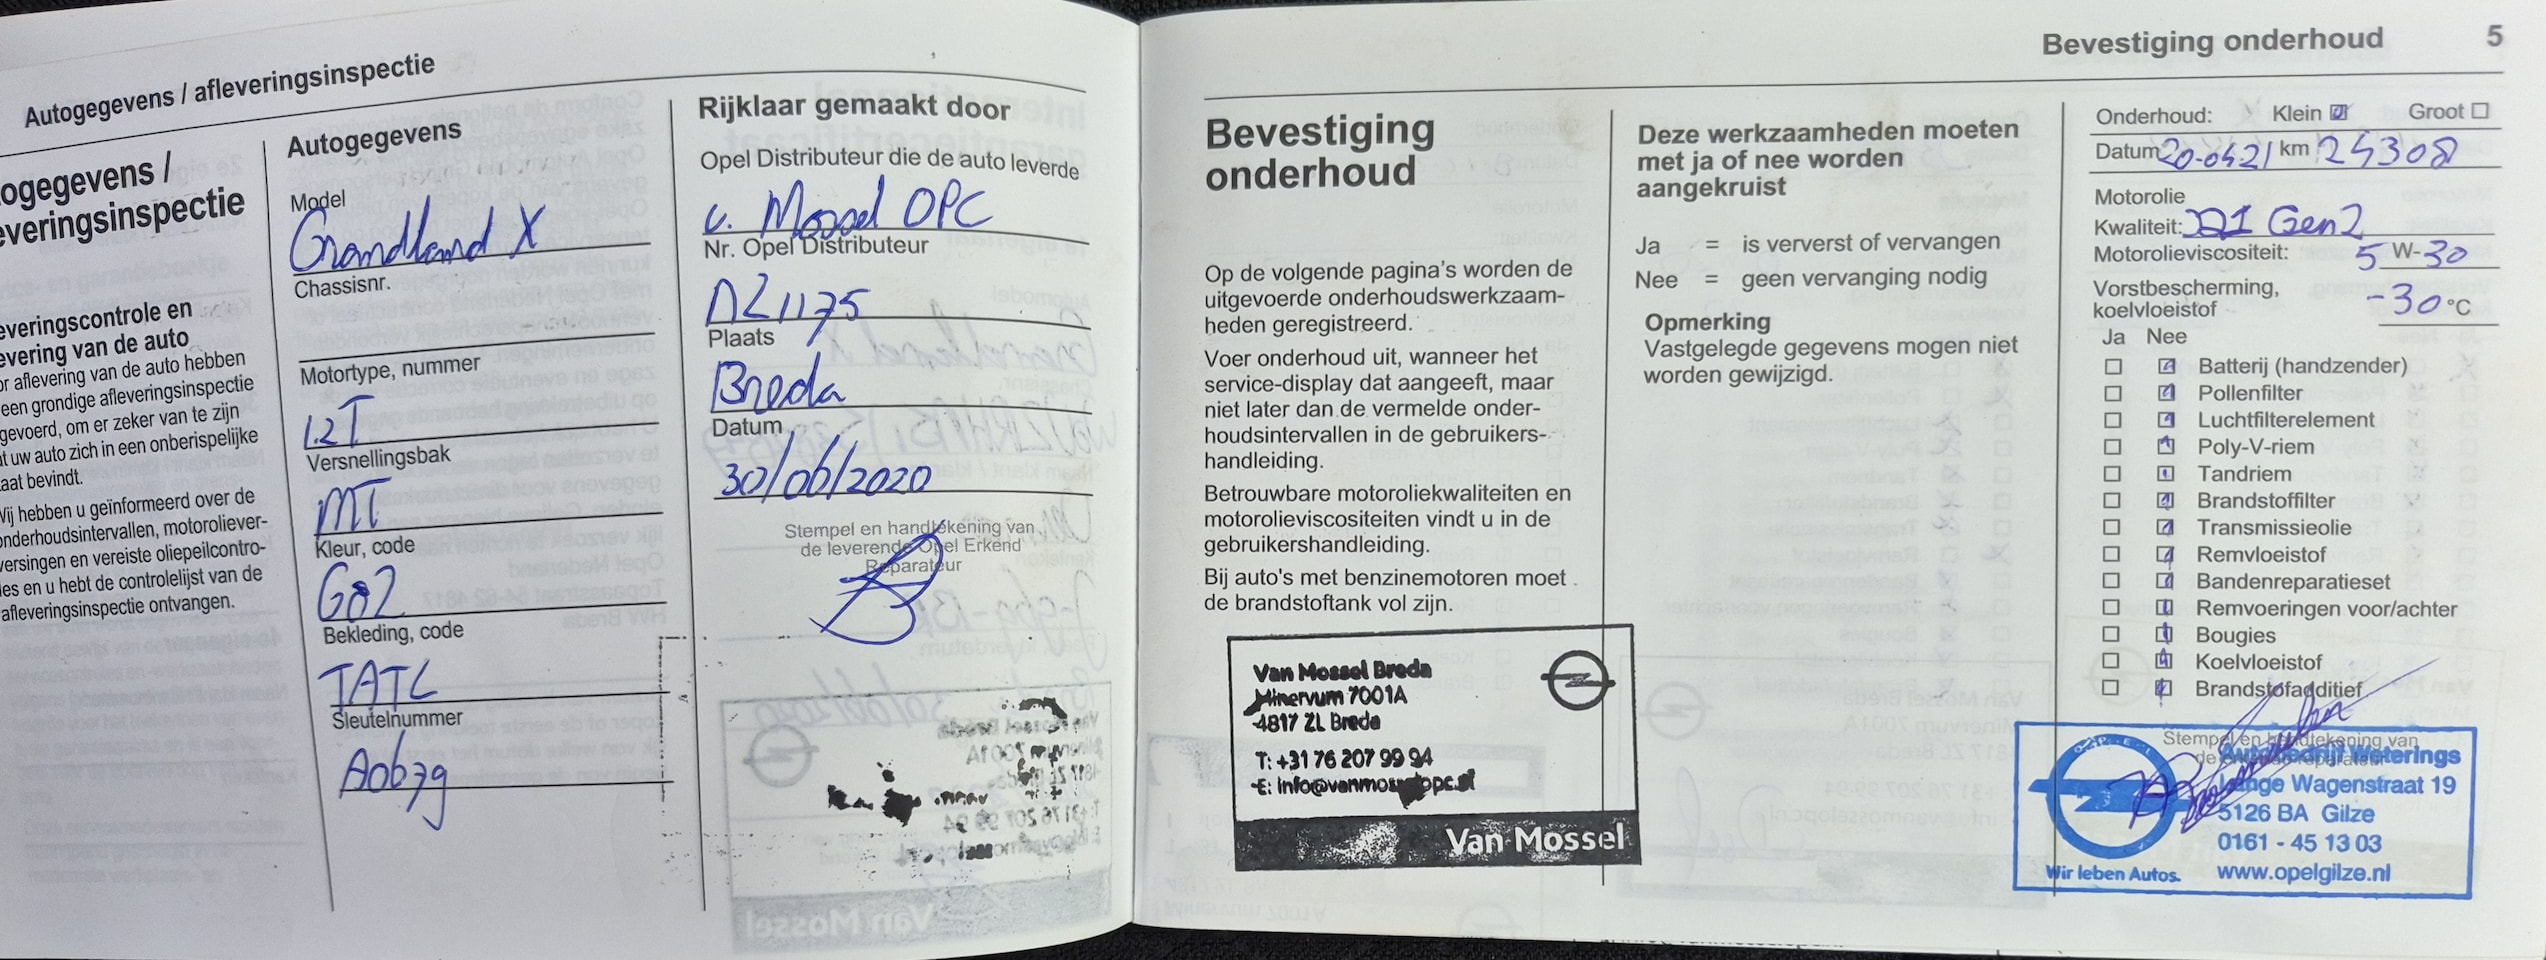 Autogegevens / afleveringsinspectie
ogegevens /
everingsinspectie
everingscontrole en
evering van de auto
or aflevering van de auto hebben
een grondige afleveringsinspectie
gevoerd, om er zeker van te zijn
at uw auto zich in een onberispelijke
aat bevindt.
Wij hebben u geïnformeerd over de
onderhoudsintervallen, motoroliever-
versingen en vereiste oliepeilcontro-
les en u hebt de controlelijst van de
afleveringsinspectie ontvangen.
Autogegevens
Model
Grandland X
Chassisnr.
Motortype, nummer
1.2T
Versnellingsbak
MT
Kleur, code
G82
Bekleding, code
TATL
Sleutelnummer
A0679
Rijklaar gemaakt door
Opel Distributeur die de auto leverde
v. Mossel OPC
Nr. Opel Distributeur
NL1175
Plaats
Breda
Datum
30/06/2020
Stempel en handtekening van
de leverende Opel Erkend
Reparateur
Bevestiging onderhoud 5
Bevestiging
onderhoud
Op de volgende pagina's worden de
uitgevoerde onderhoudswerkzaam-
heden geregistreerd.
Voer onderhoud uit, wanneer het
service-display dat aangeeft, maar
niet later dan de vermelde onder-
houdsintervallen in de gebruikers-
handleiding.
Betrouwbare motoroliekwaliteiten en
motorolieviscositeiten vindt u in de
gebruikershandleiding.
Bij auto's met benzinemotoren moet
de brandstoftank vol zijn.
Van Mossel Breda
Minervum 7001A
4817 ZL Breda
T: +31 76 207 99 94
E: info@vanmosselopc.nl
Van Mossel
Deze werkzaamheden moeten
met ja of nee worden
aangekruist
Ja = is ververst of vervangen
Nee = geen vervanging nodig
Opmerking
Vastgelegde gegevens mogen niet
worden gewijzigd.
Onderhoud: Klein Groot
Datum 20-04-21 km 24308
Motorolie
Kwaliteit: D1 Gen2
Motorolieviscositeit: 5 W-30
Vorstbescherming,
koelvloeistof -30 °C
Ja Nee
Batterij (handzender)
Pollenfilter
Luchtfilterelement
Poly-V-riem
Tandriem
Brandstoffilter
Transmissieolie
Remvloeistof
Bandenreparatieset
Remvoeringen voor/achter
Bougies
Koelvloeistof
Brandstofadditief
Stempel en handtekening van
Autobedrijf Weterings
Lange Wagenstraat 19
5126 BA Gilze
0161 - 45 13 03
Wir leben Autos. www.opelgilze.nl